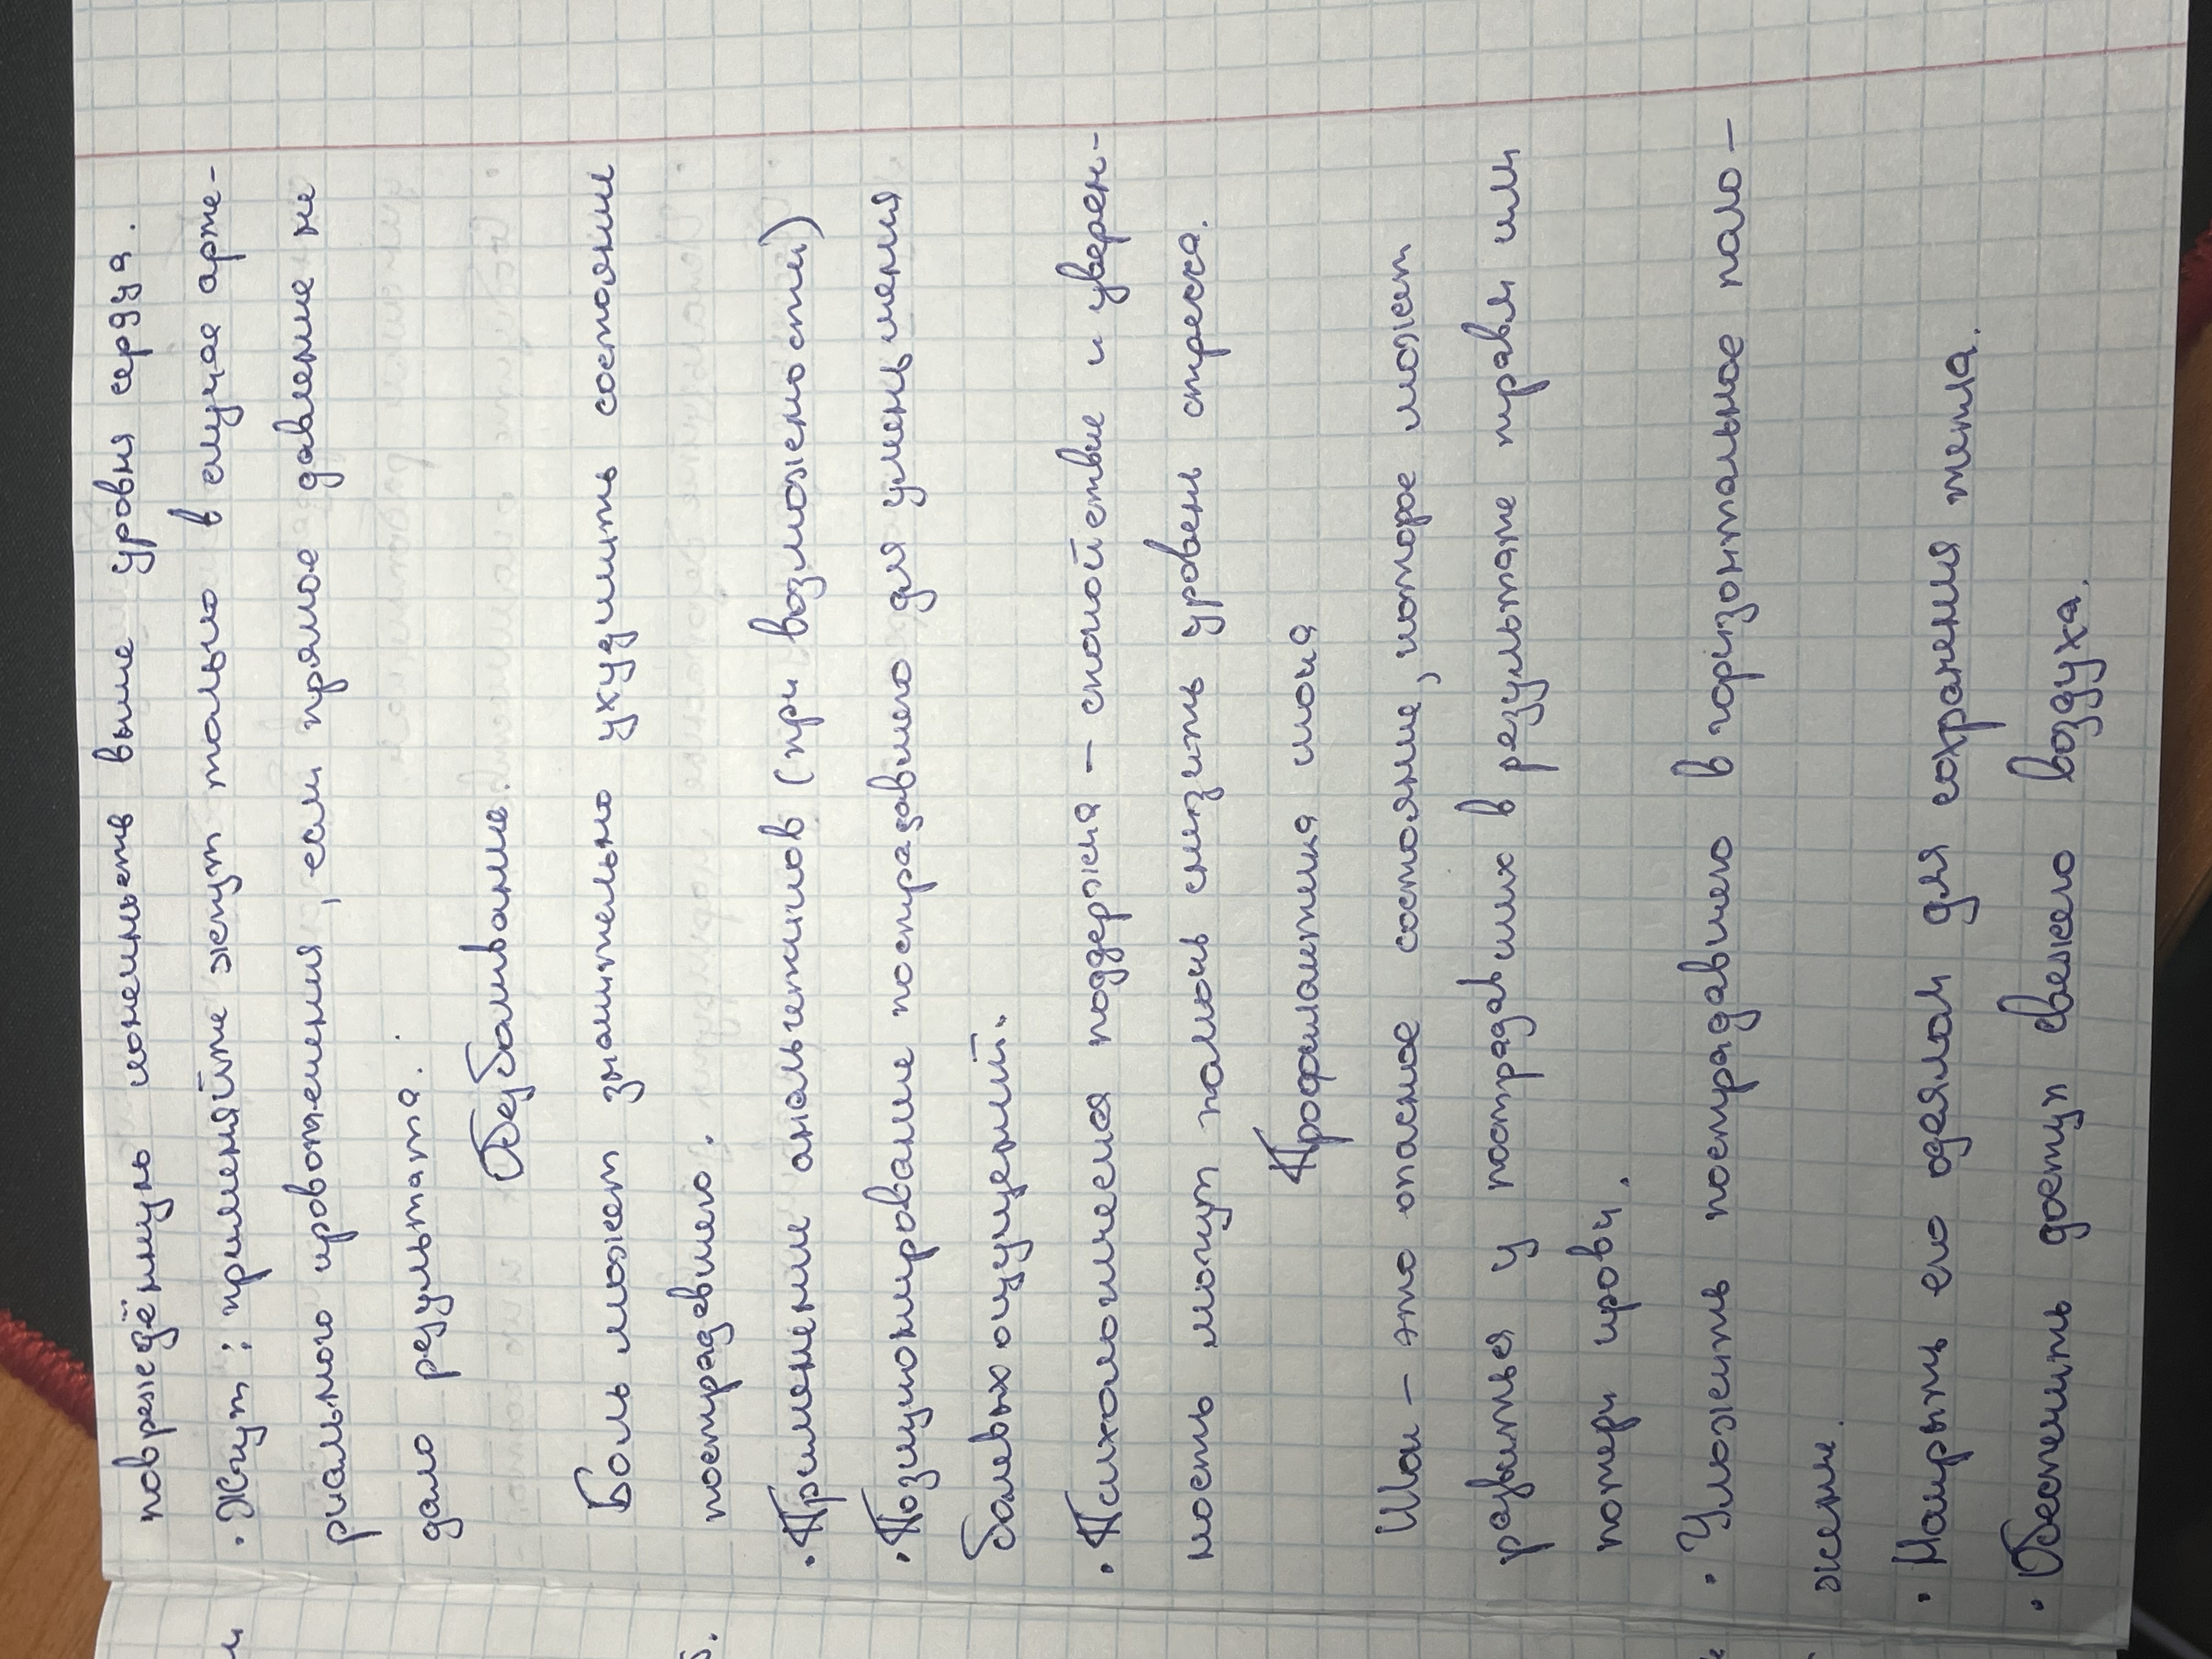 повреждённую конечность выше уровня сердца.
• Жгут: применяйте жгут только в случае арте-
риального кровотечения, если прямое давление не
дало результата.
Обезболивание.
Боль может значительно ухудшить состояние
пострадавшего.
• Применение анальгетиков (при возможности)
• Позиционирование пострадавшего для уменьшения
болевых ощущений.
• Психологическая поддержка – спокойствие и уверен-
ность могут помочь снизить уровень стресса.
Профилактика шока
Шок – это опасное состояние, которое может
развиться у пострадавших в результате травм или
потери крови.
• Уложить пострадавшего в горизонтальное поло-
жение.
• Накрыть его одеялом для сохранения тепла.
• Обеспечить доступ свежего воздуха.